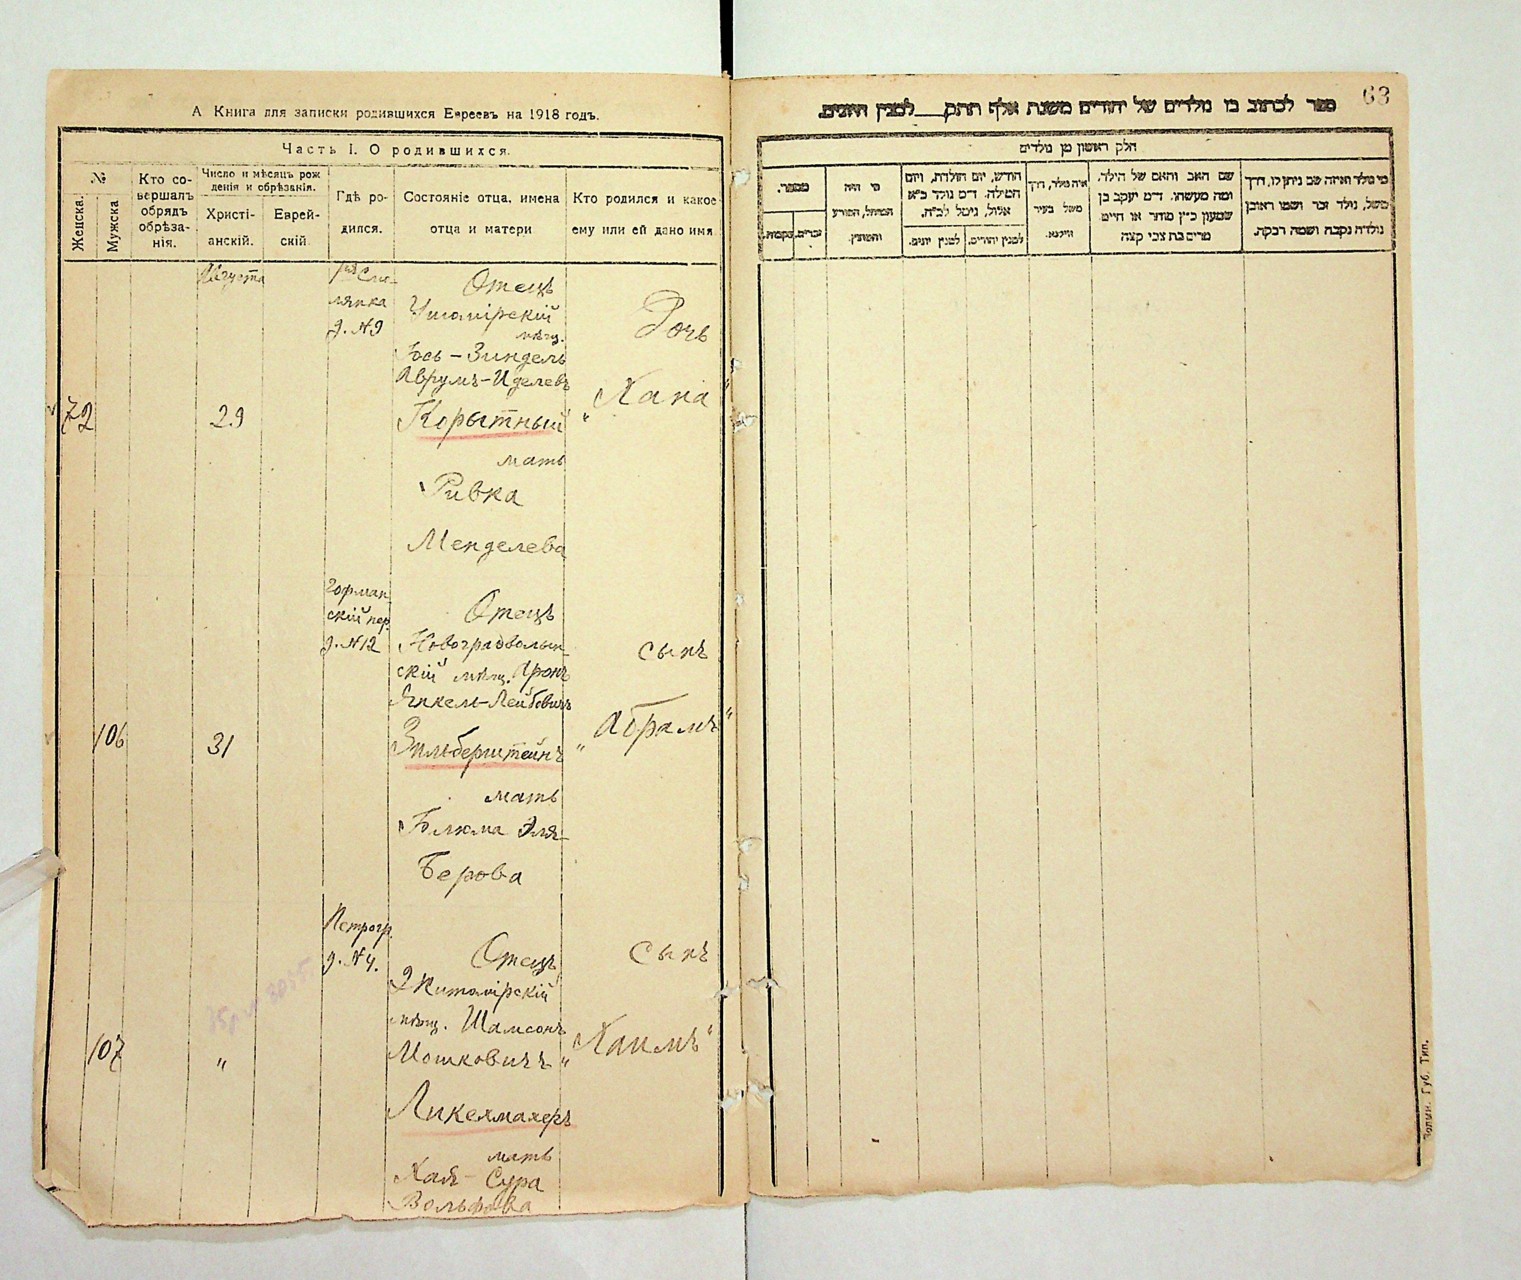 А. Книга для записки родившихся Евреевъ на 1918 годъ.
Часть I. О родившихся.
№
Женска.
Мужска
Кто со-
вершалъ
обрядъ
обрѣза-
нія.
Число и мѣсяцъ рож
денія и обрѣзанія.
Христі-
анскій.
Еврей-
скій.
Гдѣ ро-
дился.
Состояніе отца, имена
отца и матери
Кто родился и какое
ему или ей дано имя
72
Августа
29
лянка
д. №9
Отецъ
мѣщ.
Іось-Зиндель
Аврумъ-Иделевъ
Корытный
мать
Ривка
Менделева
Дочь
"Хана"
106
31
Горман
скій пер.
д. №12
Отецъ
Новоградволын-
скій мѣщ. Аронъ
Янкель-Лейбовичъ
Зильберштейнъ
мать
Блюма Эля-
Берова
сынъ
"Абрамъ"
107
"
Петрогр.
д. №4.
Отецъ
Житомірскій
мѣщ. Шамсонъ
Мошковичъ
Ликермахеръ
мать
Хая-Сура
Вольфова
сынъ
"Хаимъ"
63
ספר לכתוב בו נולדים של יהודים משנת אלף תתק___ למנין היונים.
חלק ראשון מן נולדים
מספר.
נקבות.
זכרים.
מי היה
המוהל, הפורע
והמוצץ.
החודש, יום הולדת, ויום
המילה. ד״מ נולד כ״א
אלול, נימל לכ״ח.
למנין יונים.
למנין יהודים.
שם האב והאם של הילד.
ומה מעשהו. ד״מ יעקב בן
שמעון כ״ץ סוחר או חייט
מרים בת צבי קצה
מי נולד ואיזה שם ניתן לו, דרך
משל, נולד זכר ושמו ראובן
נולדה נקבה ושמה רבקה.
Волын. Губ. Тип.